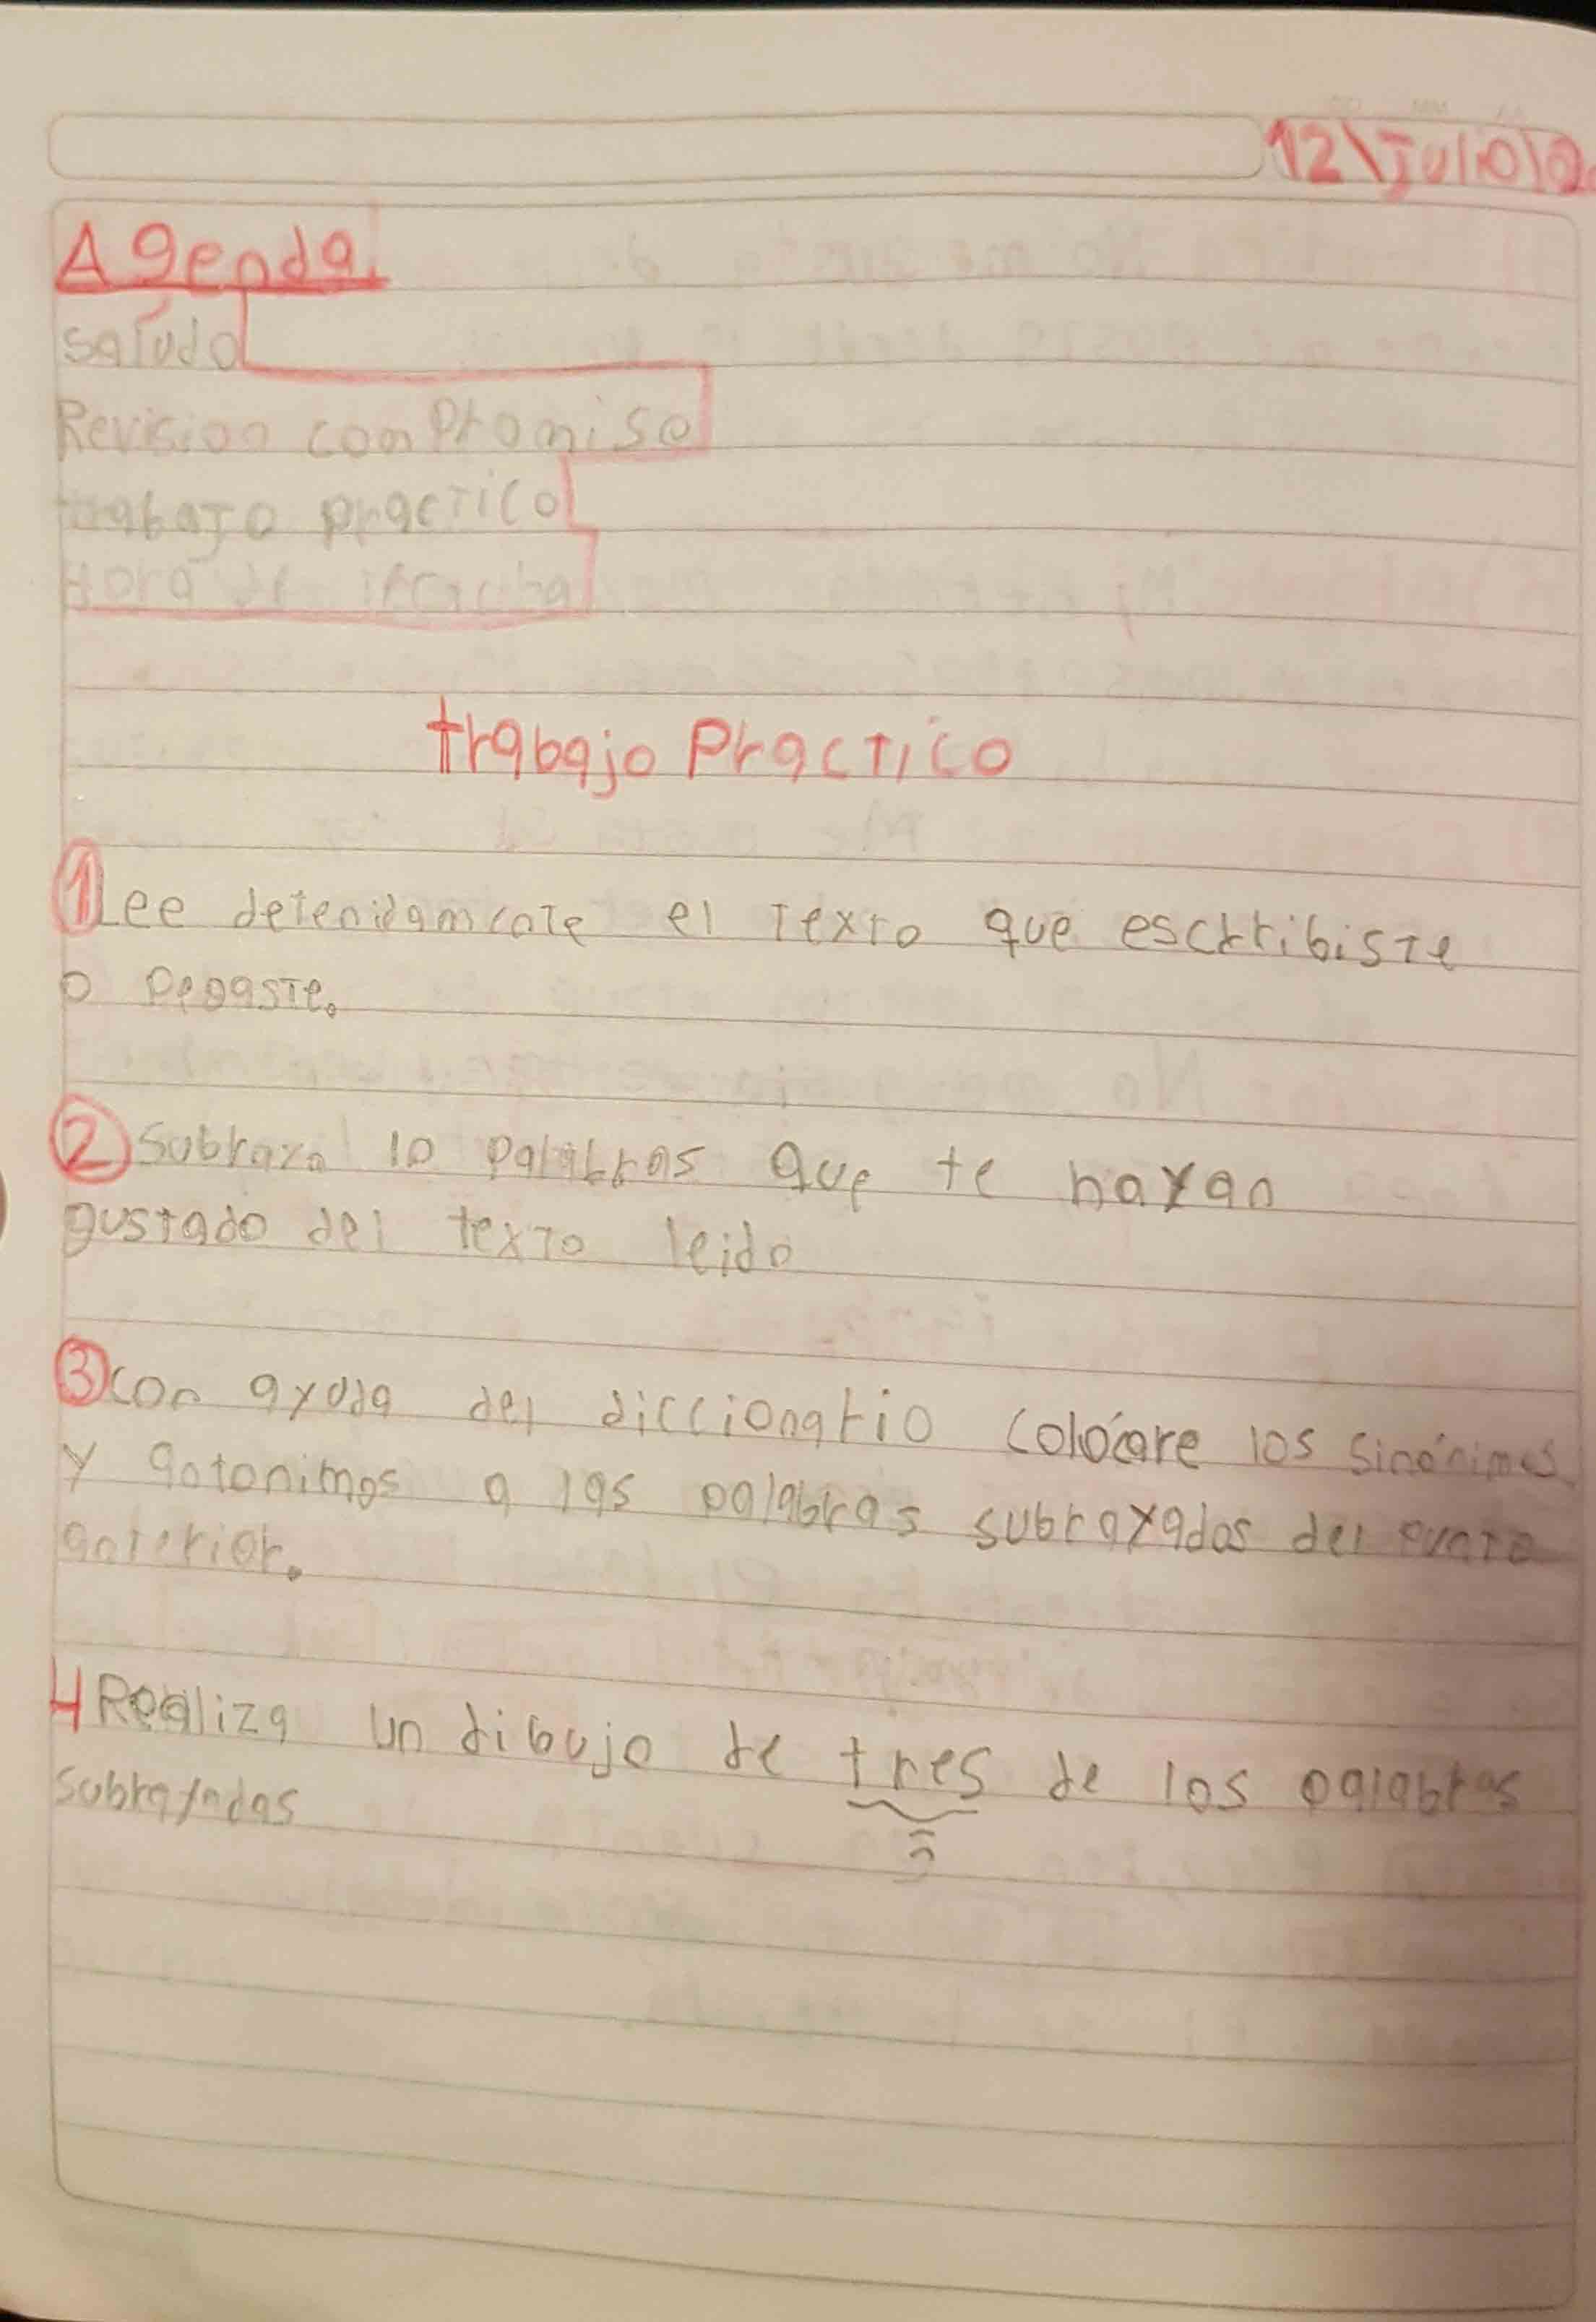 12\Julio\2
Agenda
saludo
Revision compromiso
trabajo practico
Hora de
trabajo Practico
1 Lee detenidamente el Texto que escrribiste
o pegaste.
2 Subraya 10 palabras que te hayan
gustado del texto leido
3 con ayuda del diccionario colocare los sinónimos
y antonimos a las palabras subrayados del punto
anterior.
4 Realiza un dibujo de tres de los palabras
subrayadas